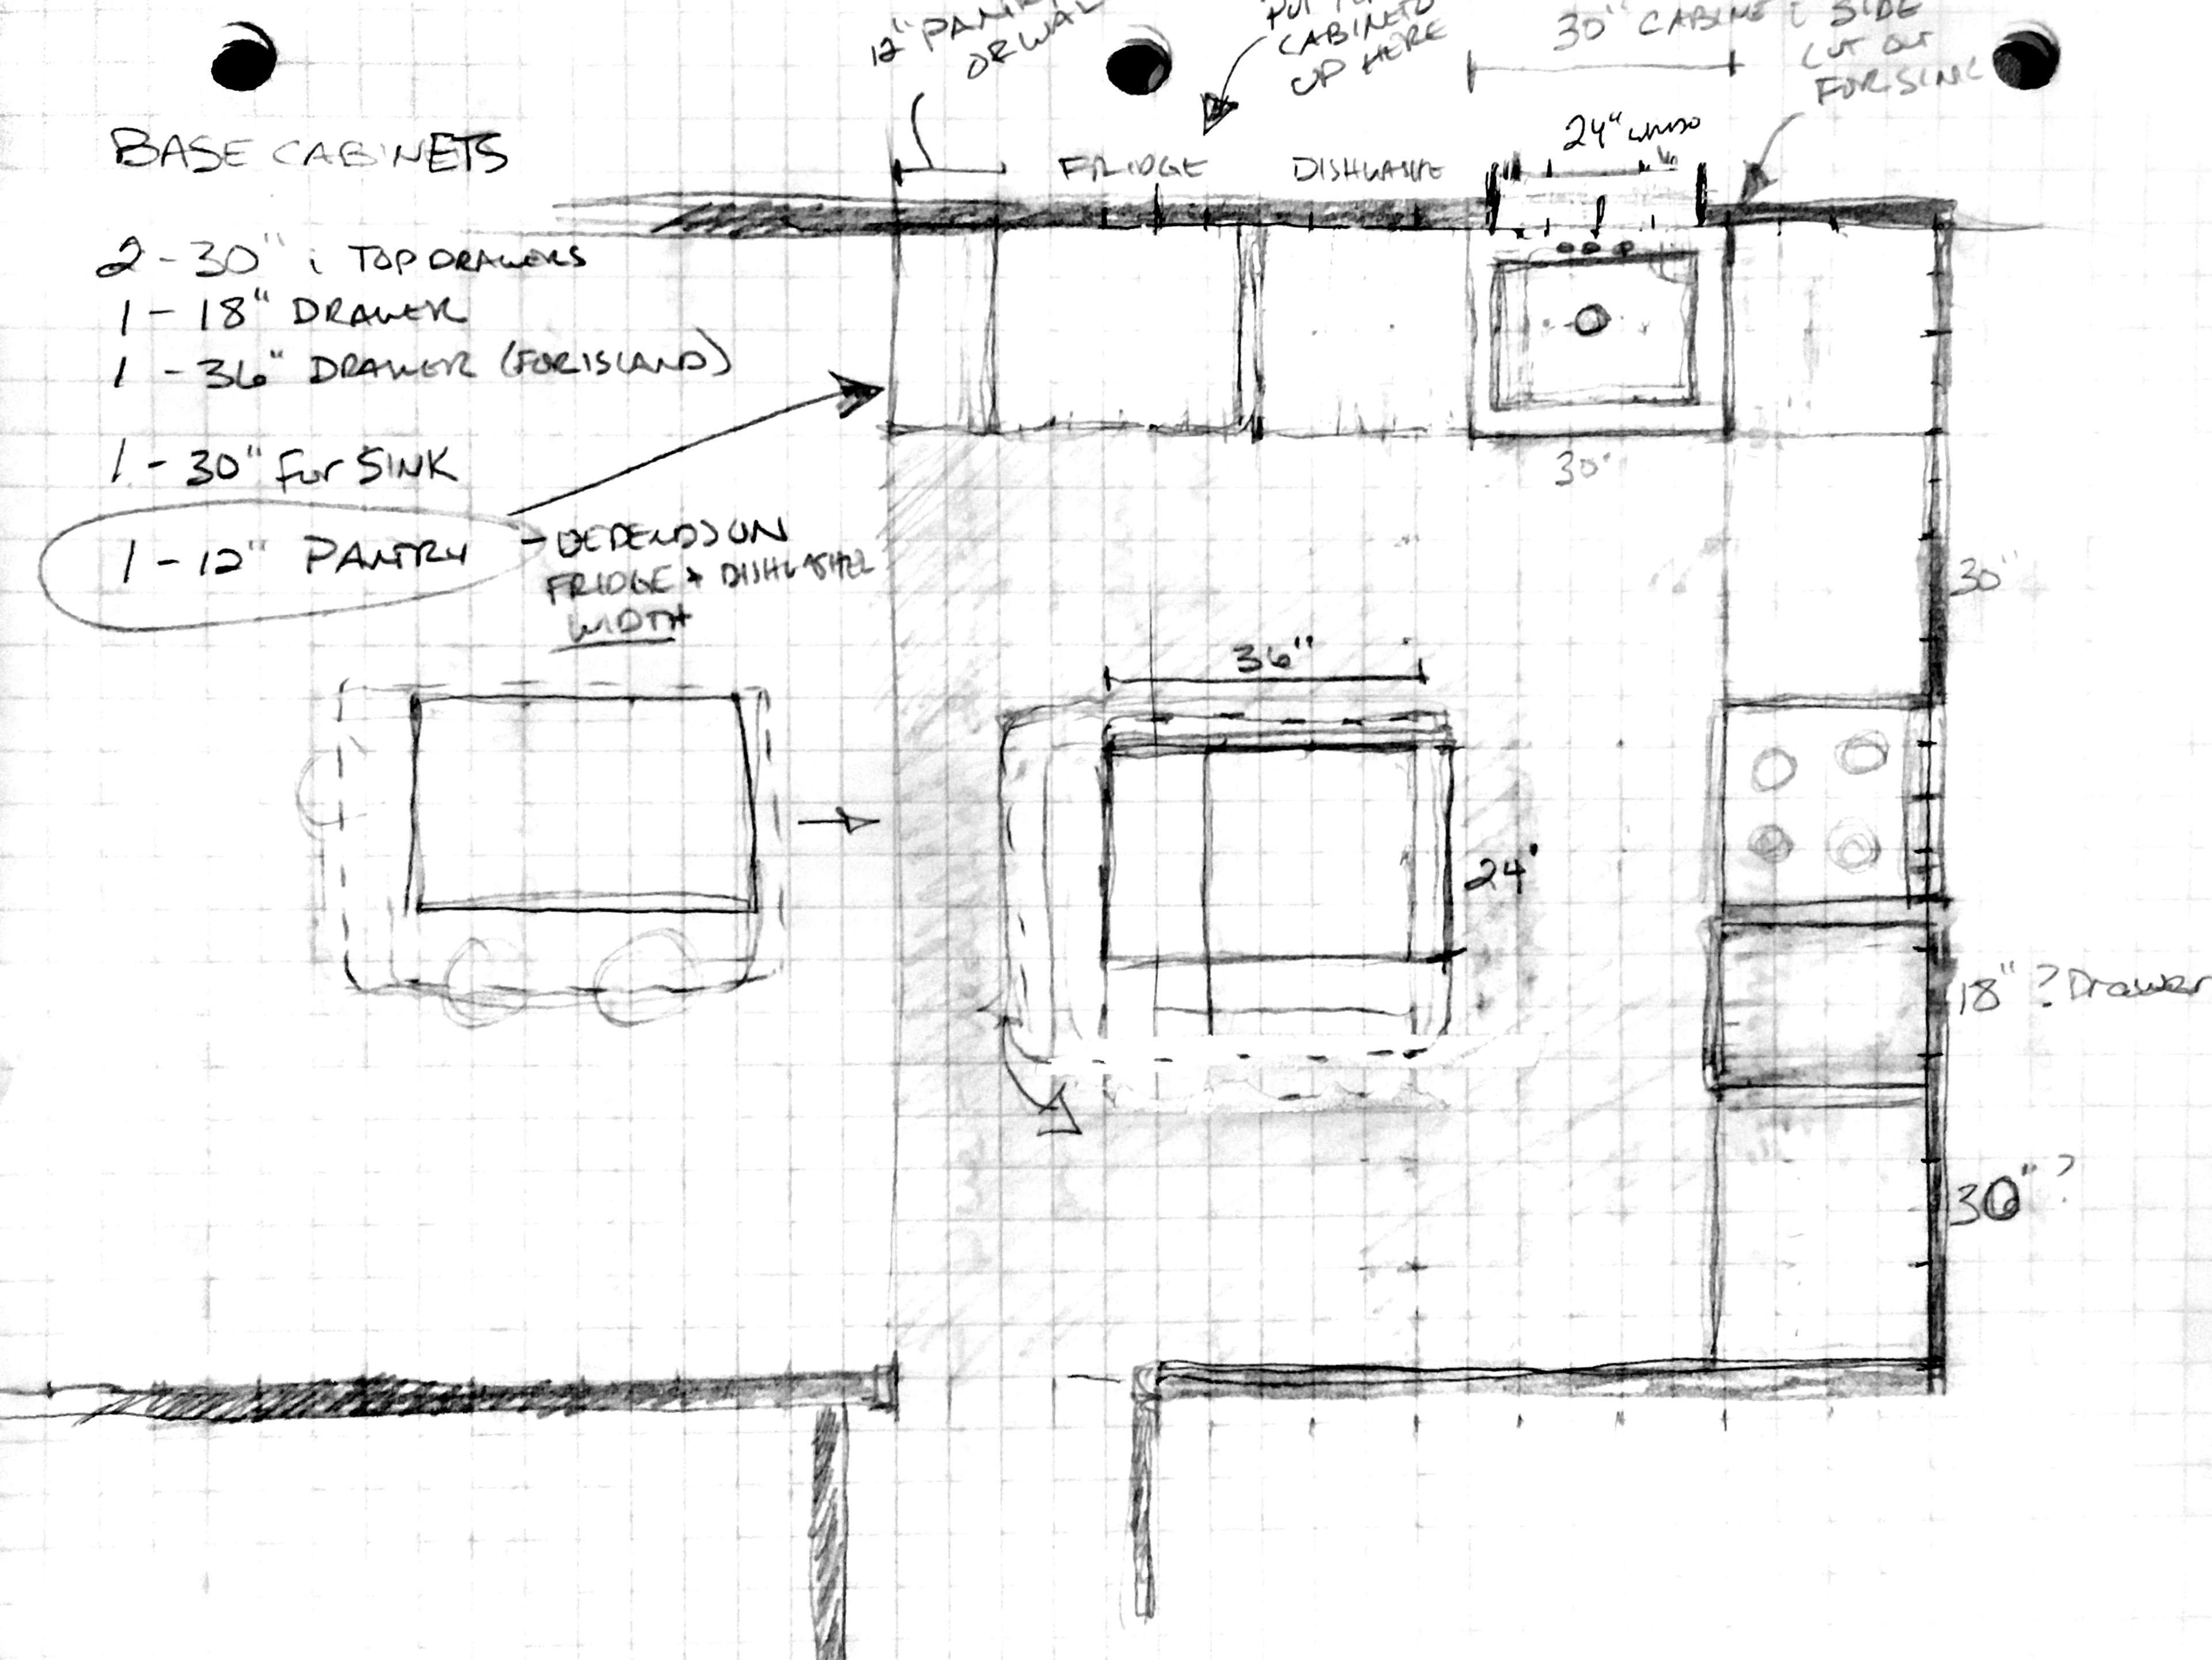 12" PANTRY
OR WAL
CABINETS
UP HERE
30" CABINET SIDE
CUT OUT
FOR SINK
24" WINDO
FRIDGE
DISHWASHE
BASE CABINETS
2-30" ; TOP DRAWERS
1-18" DRAWER
1-36" DRAWER (FOR ISLAND)
1-30" For SINK
1-12" PANTRY
- DEPENDS ON
FRIDGE + DISHWASHER
WIDTH
30"
30"
36"
24"
18" ? Drawer
30" ?